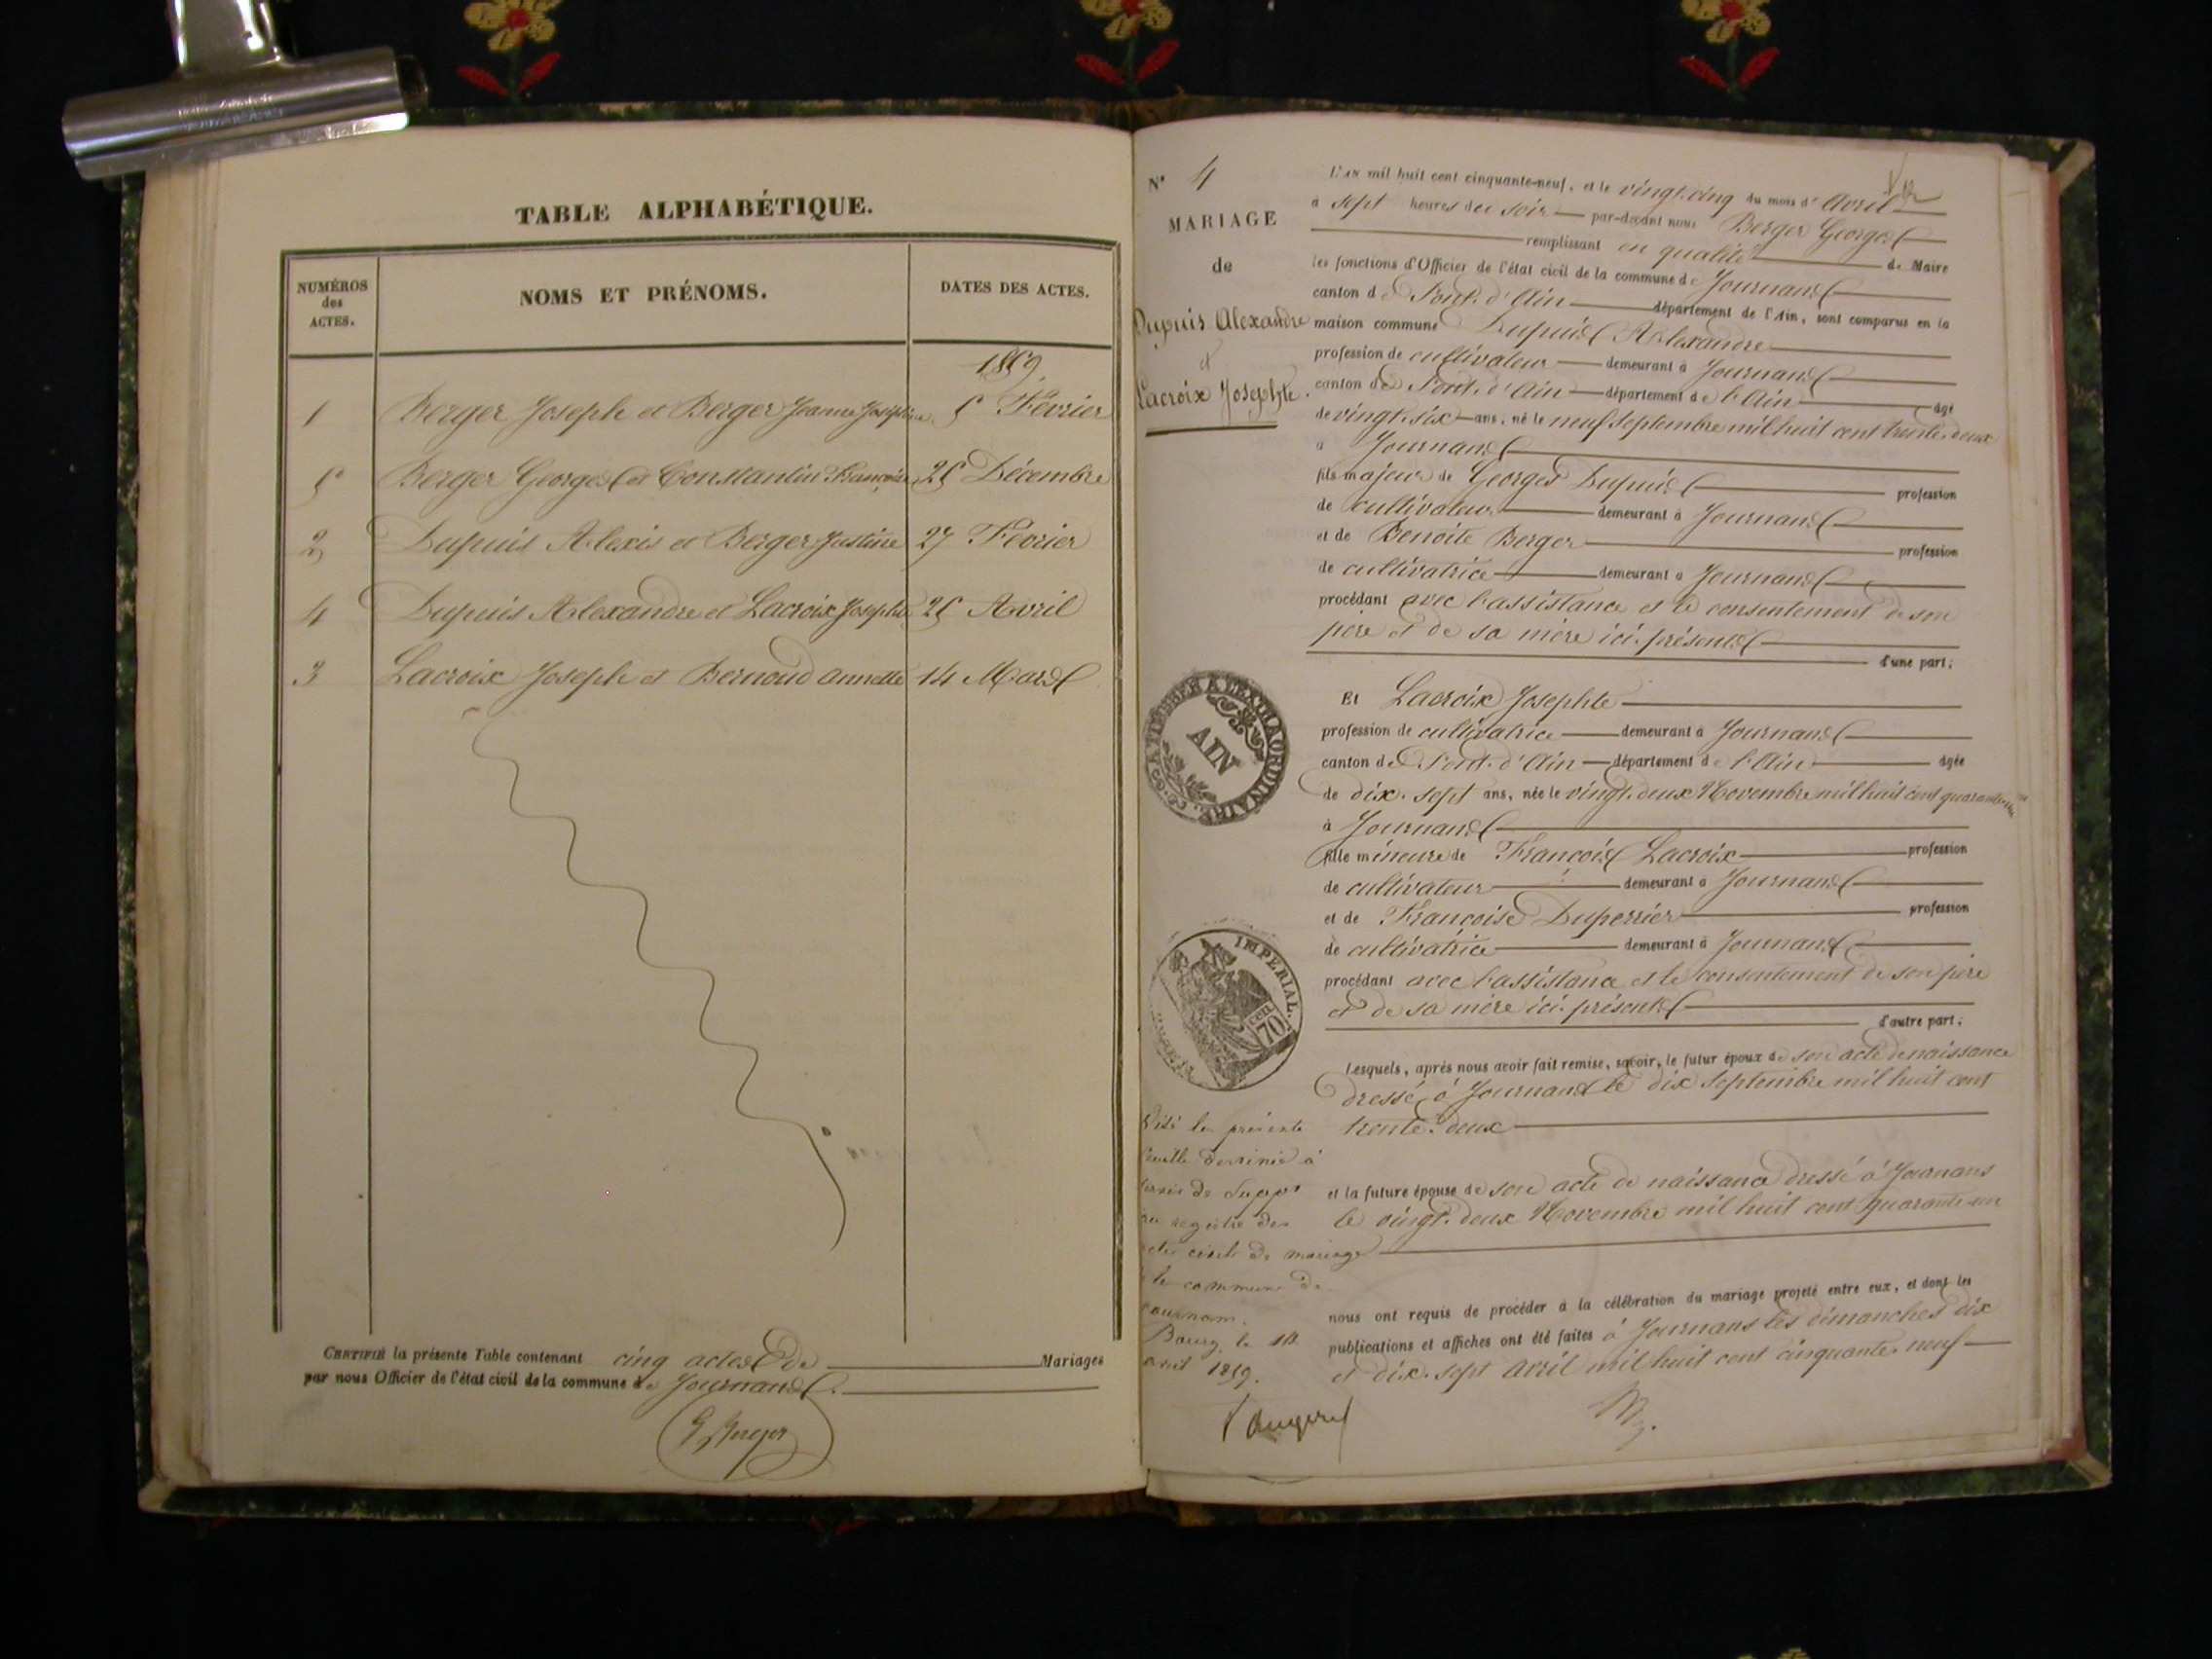 TABLE ALPHABÉTIQUE.
NUMÉROS des ACTES.
NOMS ET PRÉNOMS.
DATES DES ACTES.
1859.
1 Berger Joseph et Berger Jeanne Josephine 5 Février
5 Berger Georges et Constantin Françoise 25 Décembre
2 Dupuis Alexis et Berger Justine 27 Février
4 Dupuis Alexandre et Lacroix Josephte 25 Avril
3 Lacroix Joseph et Bernoud Annette 14 Mars
CERTIFIÉ la présente Table contenant cinq actes de Mariages
par nous Officier de l'état civil de la commune de Journans.
G Berger
N° 4
MARIAGE
de
Dupuis Alexandre
et
Lacroix Josephte.
L'AN mil huit cent cinquante-neuf, et le vingt-cinq du mois d'Avril
à sept heures du soir par-devant nous Berger Georges
remplissant en qualité de Maire
les fonctions d'Officier de l'état civil de la commune de Journans
canton de Pont-d'Ain département de l'Ain, sont comparus en la
maison commune Dupuis Alexandre
profession de cultivateur demeurant à Journans
canton de Pont-d'Ain département de l'Ain âgé
de vingt-six ans, né le neuf septembre mil huit cent trente-deux
à Journans
fils majeur de Georges Dupuis profession
de cultivateur demeurant à Journans
et de Benoite Berger profession
de cultivatrice demeurant à Journans
procédant avec l'assistance et le consentement de son
père et de sa mère ici présents
d'une part;
Et Lacroix Josephte
profession de cultivatrice demeurant à Journans
canton de Pont-d'Ain département de l'Ain âgée
de dix-sept ans, née le vingt-deux Novembre mil huit cent quarante-un
à Journans
fille mineure de François Lacroix profession
de cultivateur demeurant à Journans
et de Françoise Duperrier profession
de cultivatrice demeurant à Journans
procédant avec l'assistance et le consentement de son père
et de sa mère ici présents
d'autre part;
Lesquels, après nous avoir fait remise, savoir, le futur époux de son acte de naissance
dressé à Journans le dix septembre mil huit cent
trente-deux
et la future épouse de son acte de naissance dressé à Journans
le vingt-deux Novembre mil huit cent quarante-un
nous ont requis de procéder à la célébration du mariage projeté entre eux, et dont les
publications et affiches ont été faites à Journans les dimanches dix
et dix-sept avril mil huit cent cinquante-neuf
A TIMBRER A L'EXTRAORDINAIRE
AIN
IMPERIAL.
CEN. 70
Visé la présente
feuille destinée à
servir de Suppt
au registre des
actes civils de mariage
de la commune de
Journans.
Bourg, le
avril 1859.